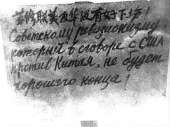 Советскому ревизионизму
который в сговоре с США
против Китая, не будет
хорошего конца!